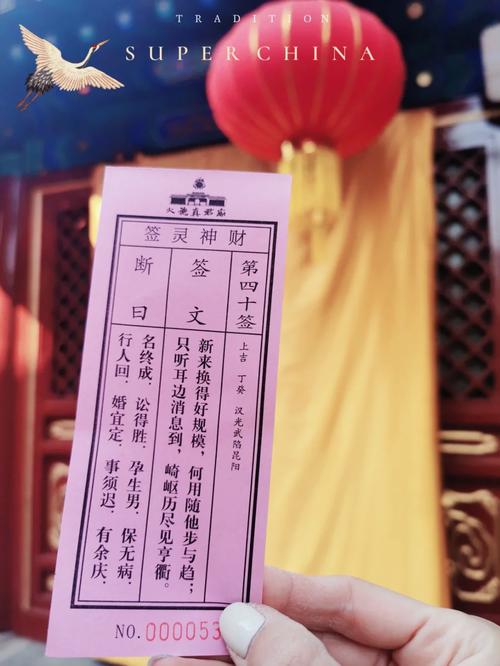 TRADITION
SUPER CHINA
火德真君廟
财神灵签
第四十签
上吉 丁癸 汉光武陷昆阳
签文
新来换得好规模，何用随他步与趋；
只听耳边消息到，崎岖历尽见亨衢。
断曰
名终成，讼得胜，孕生男，保无病，
行人回，婚宜定，事须迟，有余庆，
NO. 000053